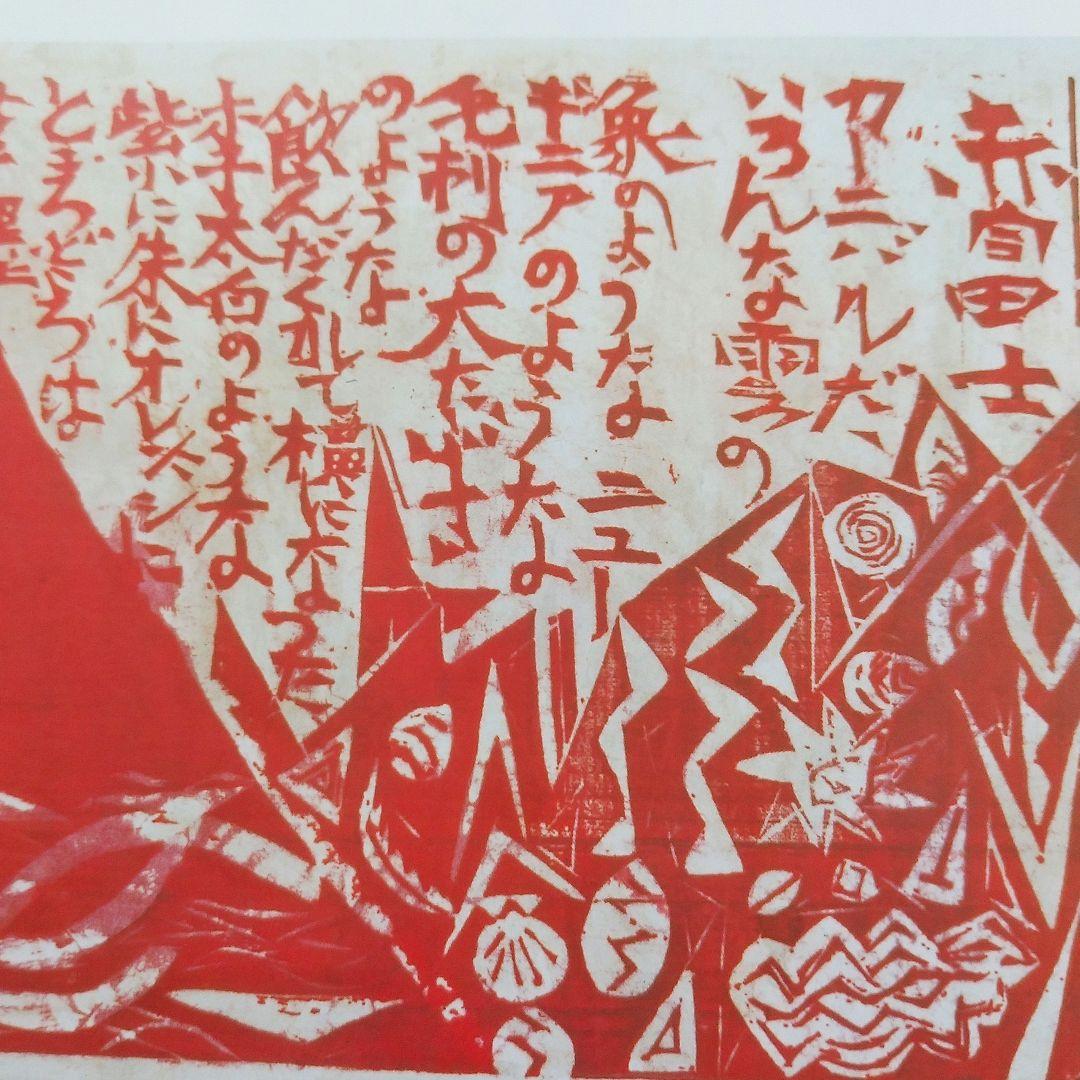 赤富士
カーニバルだ
いろんな雲の
象のようなニュー
ギニアのような
毛刺の大
のような
飲んだくれて横になった
李太白のような
紫に朱にオレンジに
ところどころは